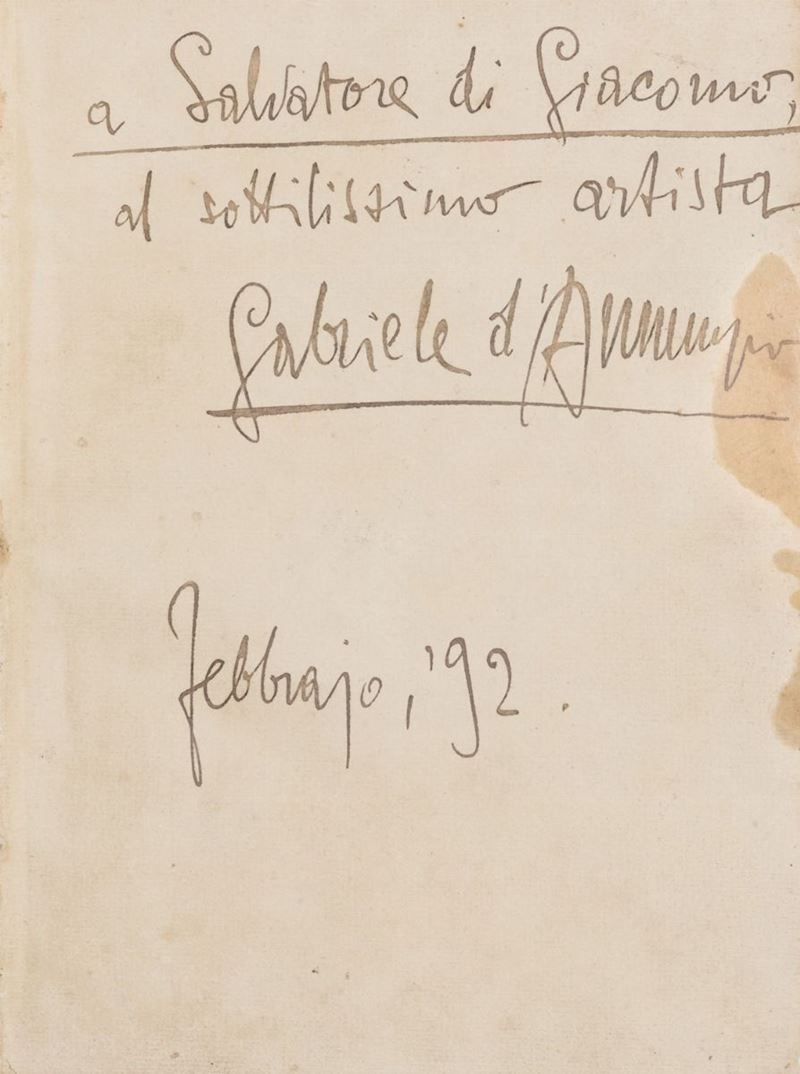 a Salvatore di Giacomo,
al sottilissimo artista
Gabriele d'Annunzio
Febbrajo, '92.